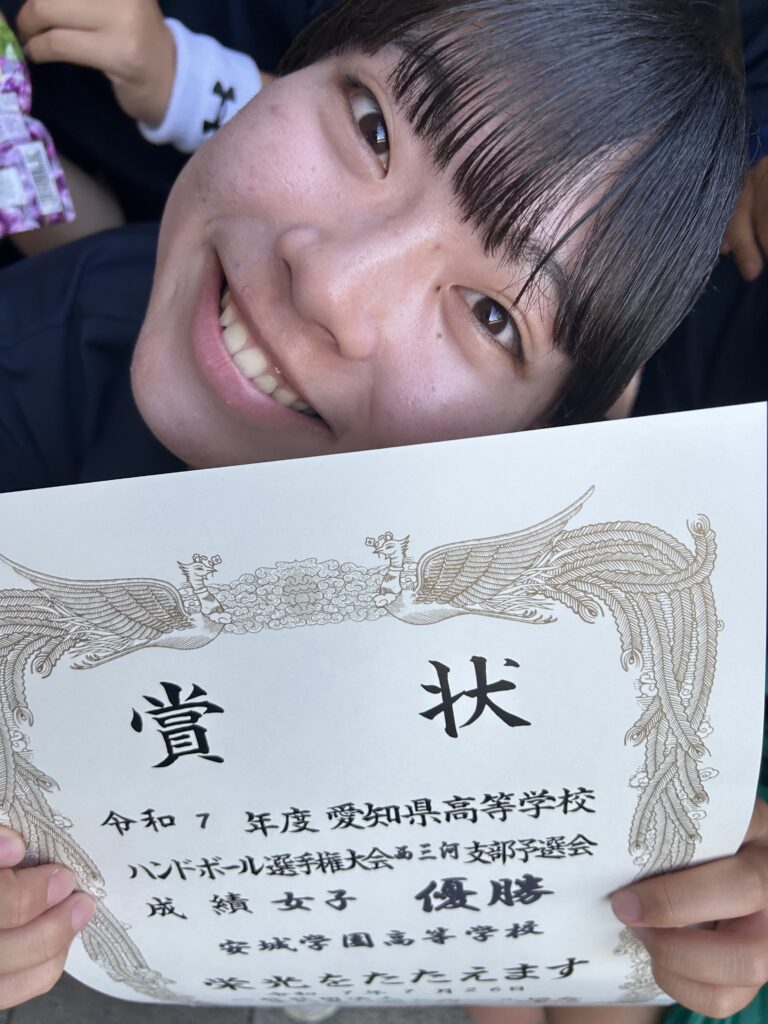 賞 状
令和 7 年度 愛知県高等学校
ハンドボール選手権大会 西三河 支部予選会
成 績 女子 優勝
安城学園高等学校
栄光をたたえます
令和7年7月26日